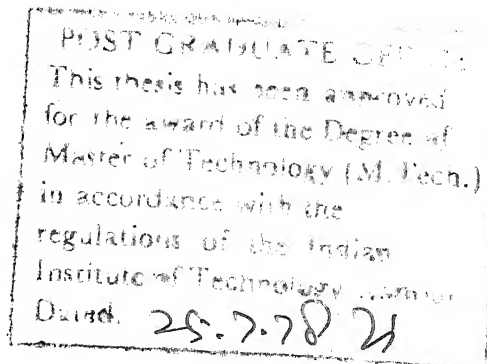 POST GRADUATE OFFICE
This thesis has been approved
for the award of the Degree of
Master of Technology (M. Tech.)
in accordance with the
regulations of the Indian
Institute of Technology
Dated. 25.7.78 21